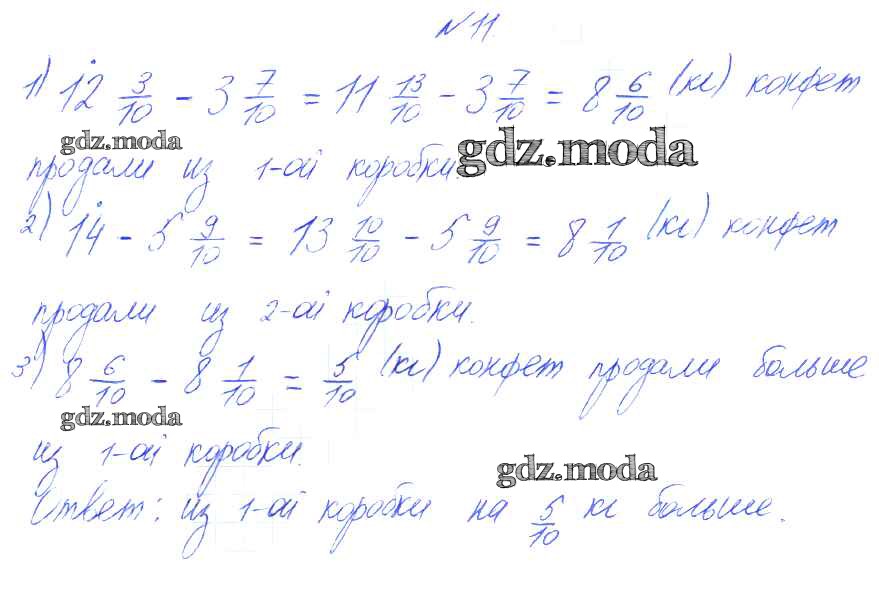 № 11.
1) 12 3/10 - 3 7/10 = 11 13/10 - 3 7/10 = 8 6/10 (кг) конфет
gdz.moda
gdz.moda
продали из 1-ой коробки.
2) 14 - 5 9/10 = 13 10/10 - 5 9/10 = 8 1/10 (кг) конфет
продали из 2-ой коробки.
3) 8 6/10 - 8 1/10 = 5/10 (кг) конфет продали больше
gdz.moda
из 1-ой коробки.
gdz.moda
Ответ: из 1-ой коробки на 5/10 кг больше.